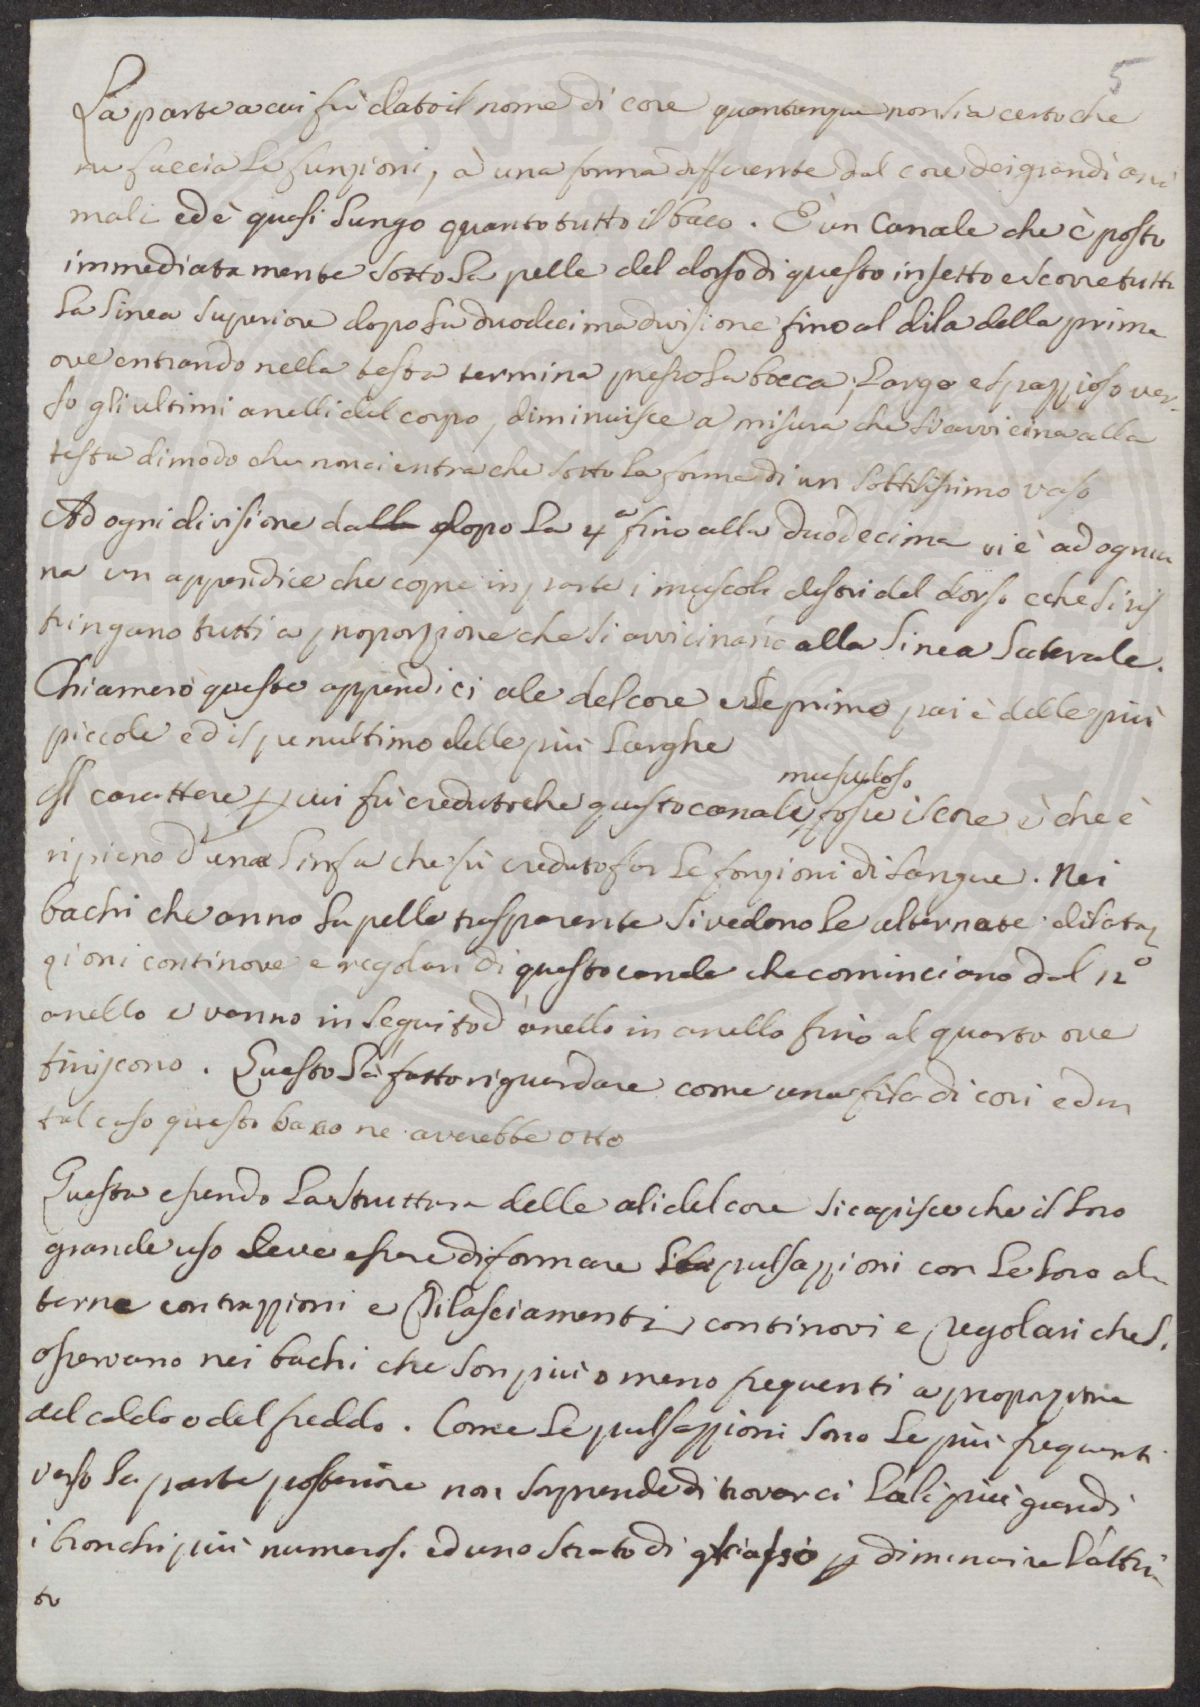 5
La parte a cui fù dato il nome di core quantunque non sia certo che
ne faccia le funzioni, à una forma differente dal core dei grandi ani
mali ed è quasi lungo quanto tutto il baco. È un Canale che è posto
immediatamente sotto la pelle del dorso di questo insetto e scorre tutta
la linea superiore dopo la duodecima divisione fino al di la della prima
ove entrando nella testa termina presso la bocca; Largo e spazzioso ver-
so gli ultimi anelli del corpo, diminuisce a misura che si avvicina alla
testa di modo che non ci entra che sotto la forma di un sottilissimo vaso
Ad ogni divisione dalla dopo la 4ª fino alla duodecima vi è ad ognu
na un appendice che copre in parte i muscoli destri del dorso e che si ris
tringano tutti a proporzione che si avvicinano alla linea laterale.
Chiamerò queste appendici ale del core ed il primo pai è delle più
piccole ed il penultimo delle più larghe
musculoso
Il carattere p cui fù creduto che questo canale fosse il core è che è
ripieno d'una linfa che fù creduto far le fonzioni di sangue. Nei
bachi che anno la pelle trasparente si vedono le alternate dilata
zioni continove e regolari di questo canale che cominciano dal 12º
anello e vanno in seguito d'anello in anello fino al quarto ove
finiscono. Questo l'à fatto riguardare come una fila di cori ed in
tal caso questo baco ne averebbe otto
Questa essendo la struttura delle ali del core si capisce che il loro
grande uso deve essere di formare le pulsazzioni con le loro al-
terne contrazzioni e rilasciamenti continovi e regolari che s.
osservano nei bachi che son più o meno frequenti a proporzione
del caldo o del freddo. Come le pulsazzioni sono le più frequenti
verso la parte posteriore non sorprende di trovarci l'ali più grandi
i bronchi più numerosi ed uno strato di grasso p diminuire l'attri
to